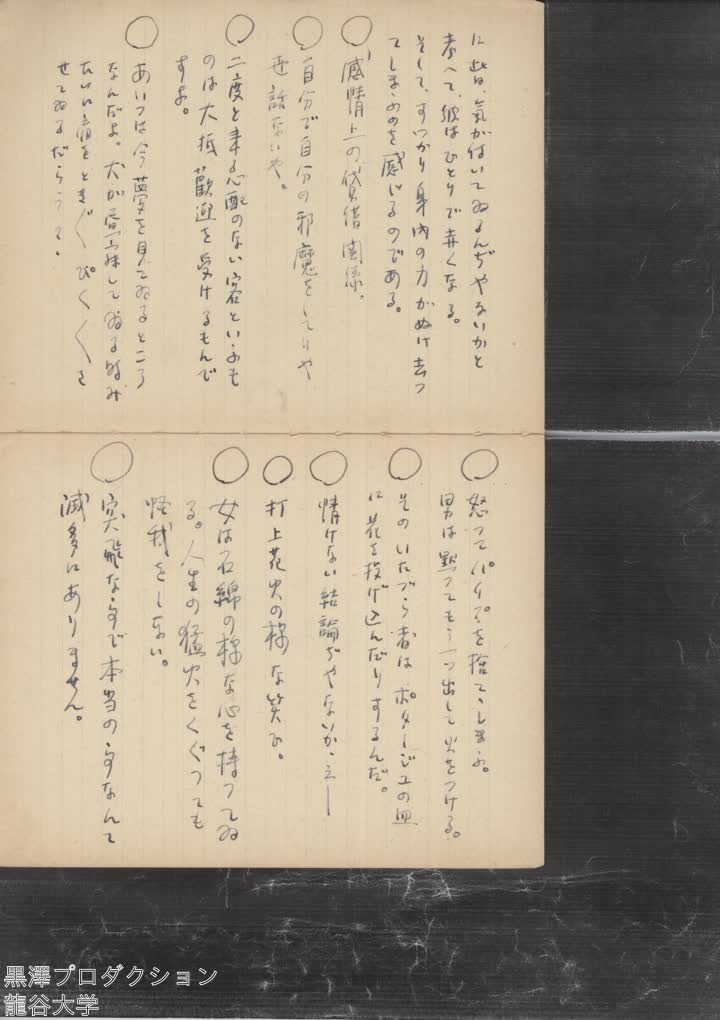 に皆、気が付いてゐるんぢやないかと
考へて、彼はひとりで赤くなる。
そして、すつかり身内の力がぬけ去つ
てしまふのを感じるのである。
○感情上の貸借関係。
○自分で自分の邪魔をしてりや
世話ないや。
○二度と来る心配のない客といふも
のは大抵歓迎を受けるもんで
すよ。
○あいつは今夢を見てゐるところ
なんだよ。犬が昼寐してゐる時み
たいに
せてゐるだらう?
○怒つてパイプを捨てゝしまふ。
男は黙つてもう一つ出して火をつける。
○そのいたづら者はポタージユの皿
に花を投げ込んだりするんだ。
○情けない結論ぢやないか、えー
○打上花火の様な笑ひ。
○女は石綿の様な心を持つてゐ
る。人生の猛火をくぐつても
怪我をしない。
○突飛な事で本当の事なんて
滅多にありません。
黒澤プロダクション
龍谷大学